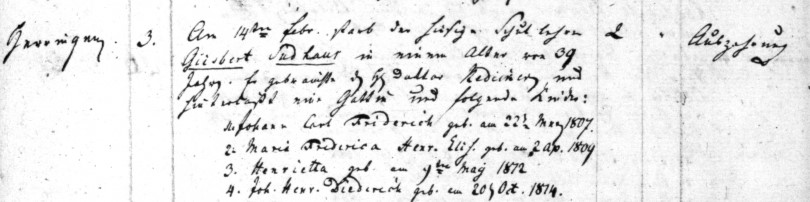 3. Am 14ten Febr. starb der hiesige Schullehrer 2 Auszehrung
Giesbert Sudhaus in einem Alter von 39
Jahren. Er gebrauchte d. H. Doktor Mediciner und
hinterlaßt eine Gattin und folgende Kinder:
1. Johann Carl Friderich geb. am 22t May 1807.
2. Maria Friderica Henr. Elis. geb. am 2 Ap. 1809
3. Henrietta geb. am 9ten May 1812
4. Joh. Henr. Diederich geb. am 20 Oct. 1814.